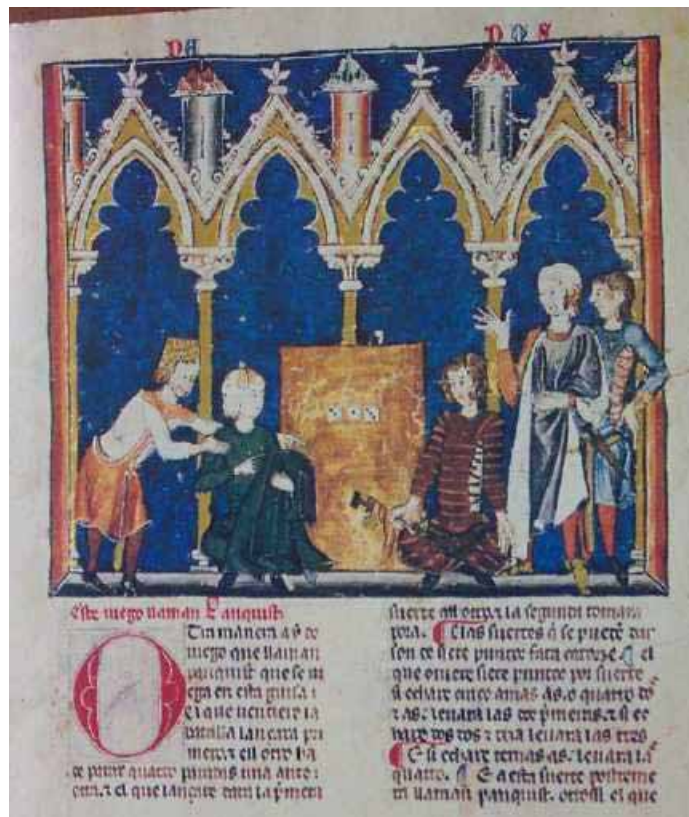 DA DOS
Este iuego llaman Panquist
Otra manera a y de
iuego que llaman
panquist que se iu
ega en esta guisa.
El que uenciere la
batalla lançara pri
mero. ⁊ ell otro ha
de parar quatro paradas una ante
otra. ⁊ el que lançare dara la p̃mera
suerte all otro. ⁊ la segunda tomara
pora. E las suertes q̃ se puedẽ dar
son de siete puntos fata catorze. E el
que ouiere siete puntos por suerte
si echare cinco amas as. o quatro
⁊ as. leuara las dos p̃meras. ⁊ si e
chare dos dos ⁊ tria leuara las tres
E si echare ternas as. leuara la
quatro. E a esta suerte postreme
ra llaman panquist. otrossi el que